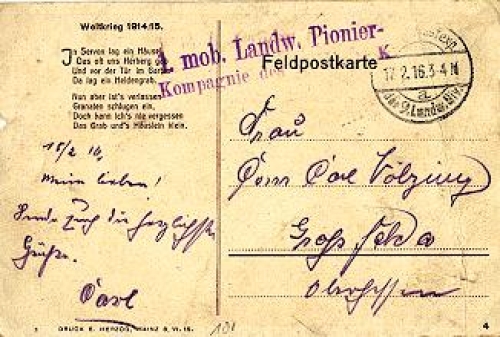 Weltkrieg 1914/15.
In Servon lag ein Häuse
Das ob uns Herberg geb
Und vor der Tür im Garten
Da lag ein Heldengrab.
Nun aber ist's verlassen
Granaten schlugen ein,
Doch kann ich's nie vergessen
Das Grab und's Häuslein klein.
1. mob. Landw. Pionier-
Kompagnie des K
Feldpostkarte
17.2.16.3-4 N
a
der 9. Landw. Div.
15/2 16.
Meine Lieben!
Sende Euch die herzlichsten
Grüße.
Carl
Frau
Carl Völzing
Groß Felda
Oberhessen
1 DRUCK E. HERZOG, MAINZ 8. VI. 15.
101
4